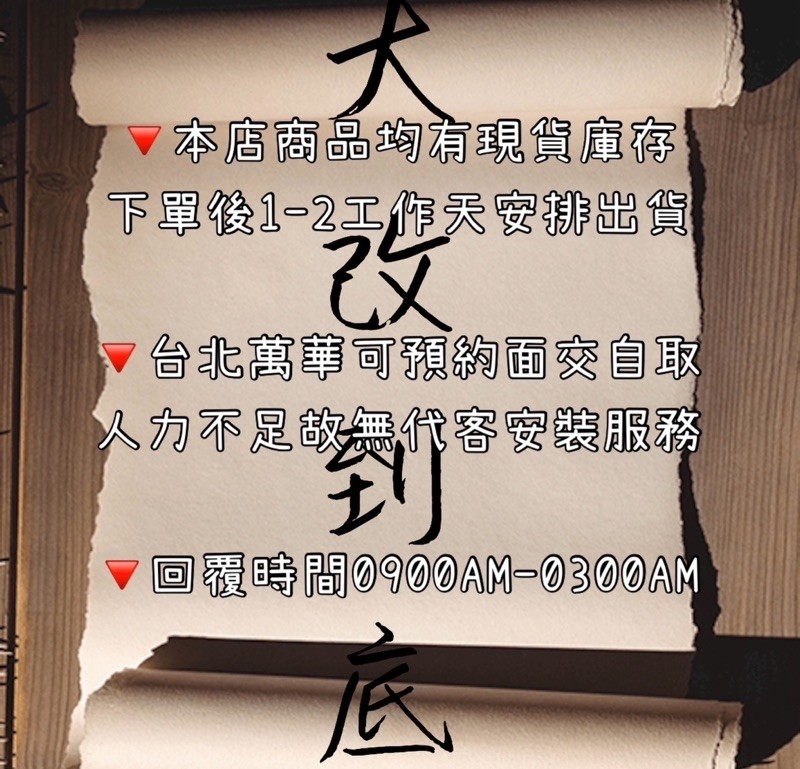 大
🔻本店商品均有現貨庫存
下單後1-2工作天安排出貨
改
🔻台北萬華可預約面交自取
人力不足故無代客安裝服務
到
🔻回覆時間0900AM-0300AM
底